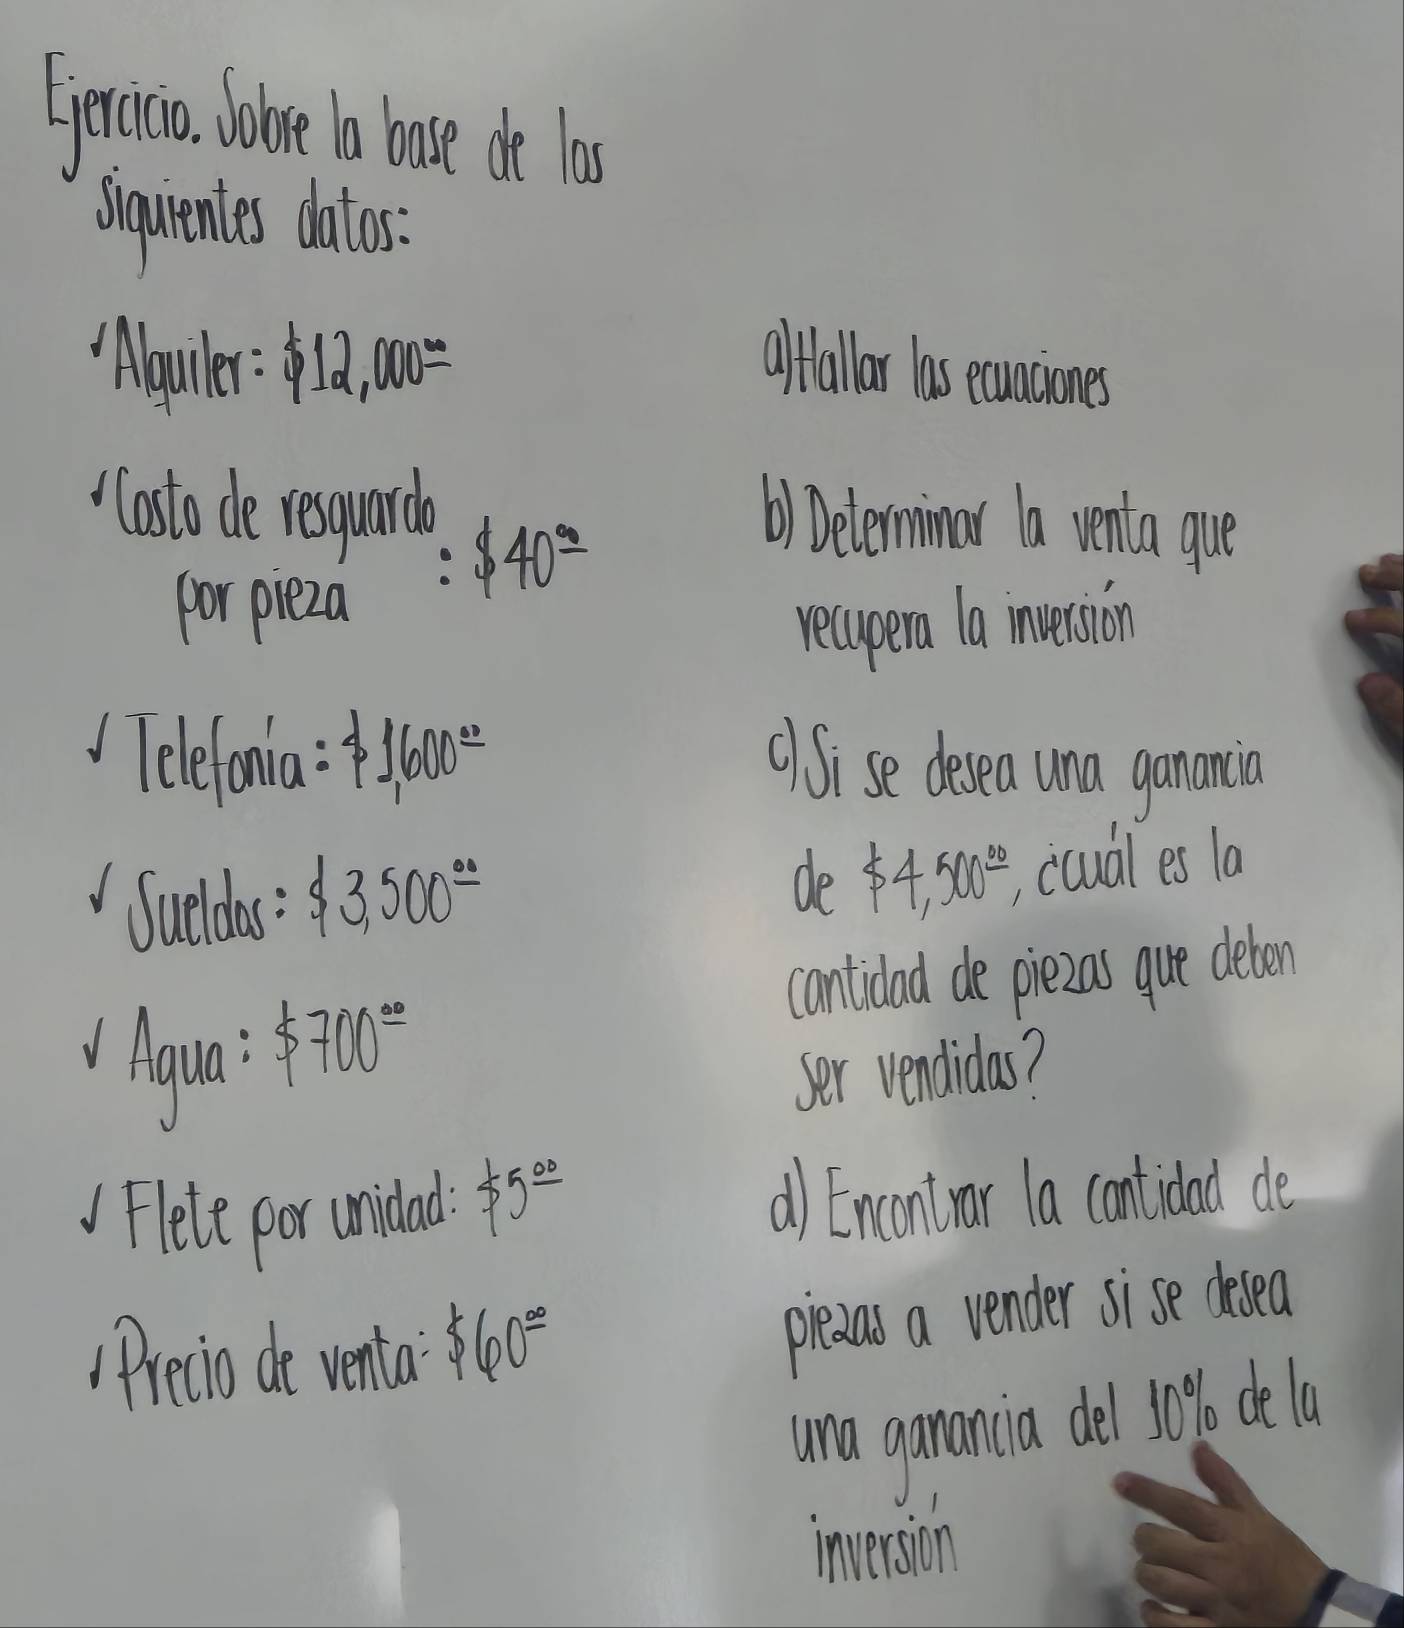 Ejercicio. Sobre la base de los
siguientes datos:
✓Alquiler: $12,000⁰⁰
✓Costo de resguardo
por pieza : $40⁰⁰
✓Telefonía: $1,600⁰⁰
✓Sueldos: $3,500⁰⁰
✓Agua: $700⁰⁰
✓Flete por unidad: $5⁰⁰
✓Precio de venta: $60⁰⁰
a) Hallar las ecuaciones
b) Determinar la venta que
recupera la inversión
c) Si se desea una ganancia
de $4,500⁰⁰, ¿cuál es la
cantidad de piezas que deben
ser vendidas?
d) Encontrar la cantidad de
piezas a vender si se desea
una ganancia del 10% de la
inversión